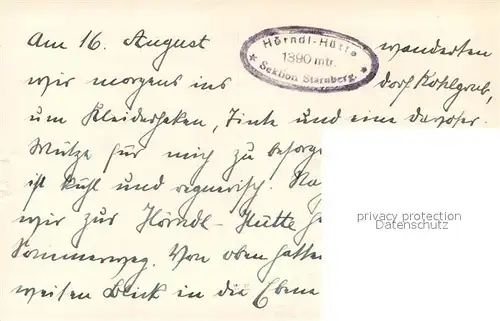 Am 16. August wanderten
Hörndl-Hütte
1390 mtr.
* Sektion Starnberg. *
wir morgens ins dorf Kohlgrub,
um Kleiderhaken, Tinte und eine davoser
Mütze für mich zu besorge
ist kühl und regnerisch.
wir zur Hörndl-Hütte
Sommerweg. Von oben hatte
weiten Blick in die Ebene
privacy protection
Datenschutz